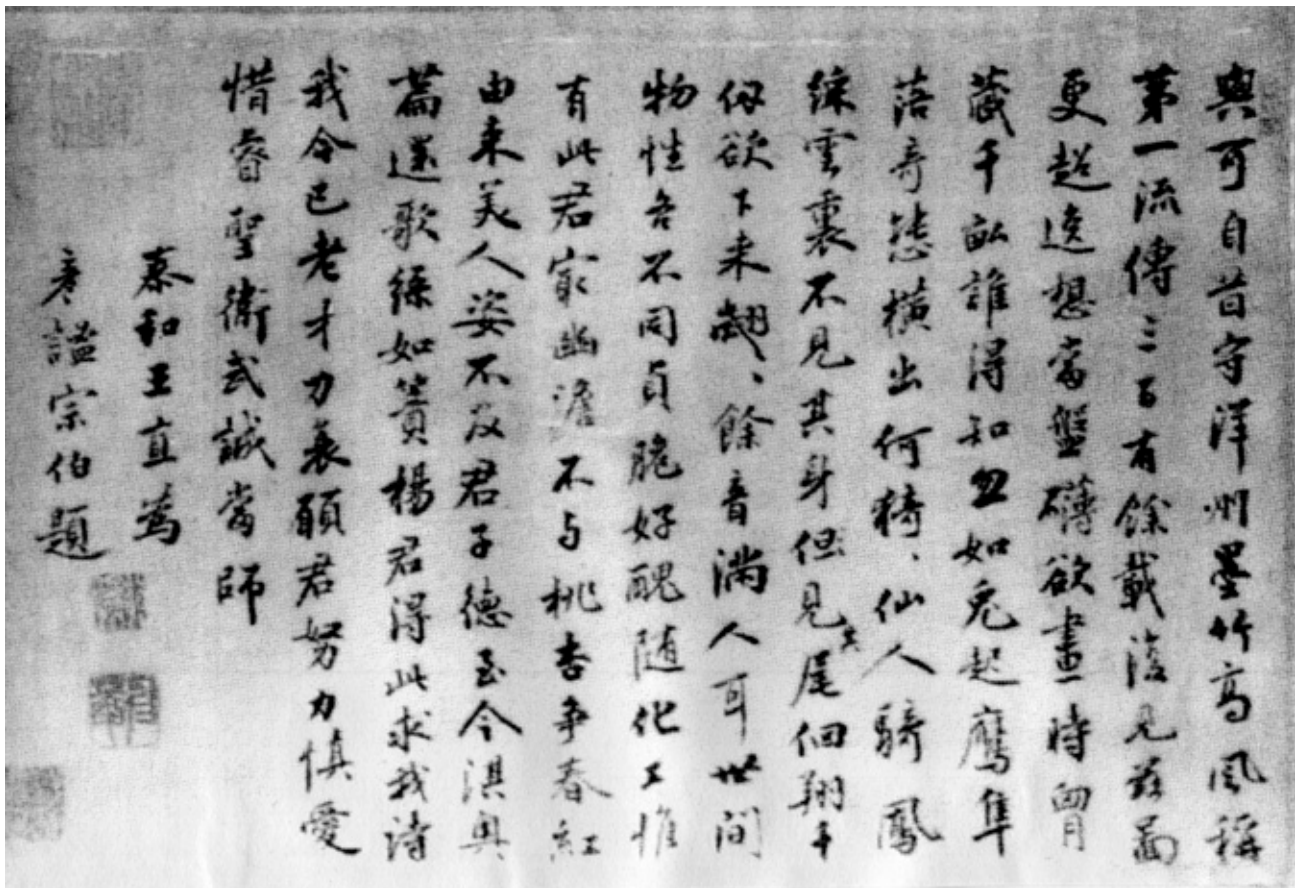 與可自昔守洋州墨竹髙風稱
第一流傳三百有餘載復見茲畫
更超逸想當盤礴欲畫時胷
蔵千畝誰得知忽如兎起鷹隼
落奇態橫出何猗〻仙人騎鳳
綵雲裏不見其身但見其尾佪翔千
仞欲下来翽〻餘音滿人耳世间
物性各不同貞脆好醜随化工惟
有此君最幽澹不与桃杏争春紅
由来美人姿不及君子德至今淇奥
篇遂歌綠如簀楊君得此求我诗
我今已老才力衰願君努力慎愛
惜睿聖衛武誠當師
泰和王直為
彥謐宗伯題